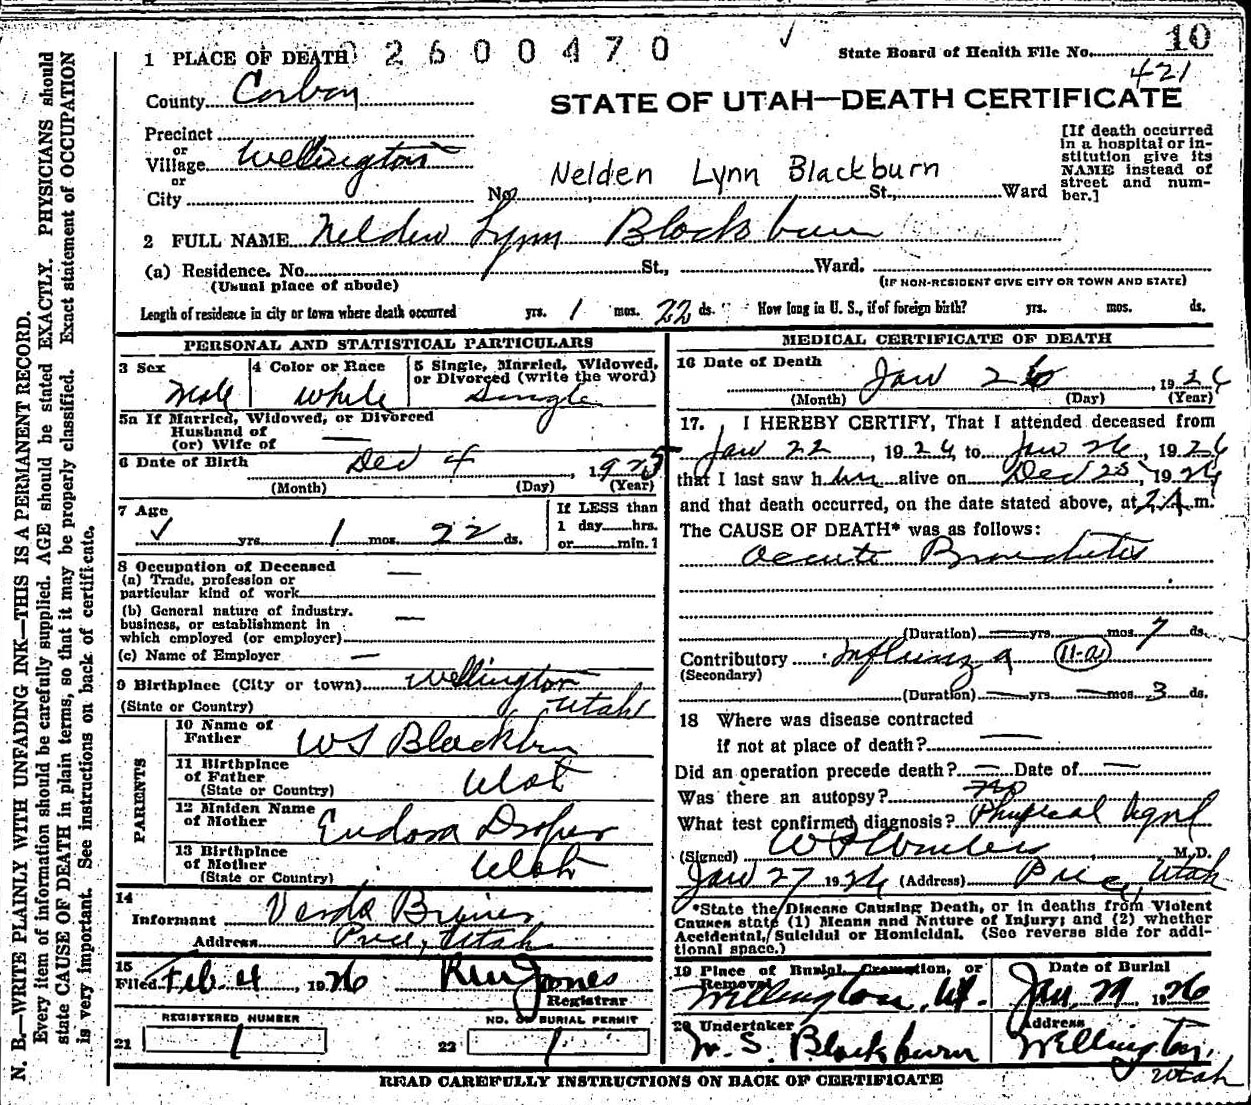 10
State Board of Health File No.
421
02600470
1 PLACE OF DEATH
County Carbon
STATE OF UTAH—DEATH CERTIFICATE
Precinct
or
Village Wellington
or
City
No. Nelden Lynn Blackburn St., Ward
[If death occurred in a hospital or institution give its NAME instead of street and number.]
2 FULL NAME Nelden Lynn Blackburn
(a) Residence. No. St., Ward.
(Usual place of abode)
(IF NON-RESIDENT GIVE CITY OR TOWN AND STATE)
Length of residence in city or town where death occurred yrs. 1 mos. 22 ds. How long in U. S., if of foreign birth? yrs. mos. ds.
PERSONAL AND STATISTICAL PARTICULARS
3 Sex Male
4 Color or Race White
5 Single, Married, Widowed, or Divorced (write the word) Single
5a If Married, Widowed, or Divorced
Husband of
(or) Wife of —
6 Date of Birth Dec 4, 1925
(Month) (Day) (Year)
7 Age
✓ yrs. 1 mos. 22 ds.
If LESS than
1 day hrs.
or min.?
8 Occupation of Deceased
(a) Trade, profession or particular kind of work —
(b) General nature of industry, business, or establishment in which employed (or employer) —
(c) Name of Employer —
9 Birthplace (City or town) Wellington
(State or Country) Utah
PARENTS
10 Name of Father W S Blackburn
11 Birthplace of Father (State or Country) Utah
12 Maiden Name of Mother Eudora Draper
13 Birthplace of Mother (State or Country) Utah
14
Informant Verda
Address Price, Utah
15
Filed Feb 4, 1926 Jones
Registrar
REGISTERED NUMBER
21 1
NO. OF BURIAL PERMIT
22 1
MEDICAL CERTIFICATE OF DEATH
16 Date of Death
Jan 26, 1926
(Month) (Day) (Year)
17. I HEREBY CERTIFY, That I attended deceased from
Jan 22, 1926, to Jan 26, 1926
that I last saw him alive on Dec 25, 1926
and that death occurred, on the date stated above, at 2 A. m.
The CAUSE OF DEATH* was as follows:
Accute Bronchitis
(Duration) — yrs. mos. 7 ds.
Contributory Influenza 11-a
(Secondary)
(Duration) — yrs. — mos. 3 ds.
18 Where was disease contracted
if not at place of death? —
Did an operation precede death? — Date of —
Was there an autopsy? no
What test confirmed diagnosis? Physical
(Signed) M. D.
Jan 27 1926 (Address) Price, Utah
*State the Disease Causing Death, or in deaths from Violent
Causes state (1) Means and Nature of Injury; and (2) whether
Accidental, Suicidal or Homicidal. (See reverse side for addi-
tional space.)
19 Place of Burial, Cremation, or Removal
Wellington, Ut.
Date of Burial
Jan, 29, 1926
20 Undertaker
W. S. Blackburn
Address
Wellington,
Utah
READ CAREFULLY INSTRUCTIONS ON BACK OF CERTIFICATE
N. B.—WRITE PLAINLY WITH UNFADING INK—THIS IS A PERMANENT RECORD.
Every item of information should be carefully supplied. AGE should be stated EXACTLY. PHYSICIANS should
state CAUSE OF DEATH in plain terms, so that it may be properly classified. Exact statement of OCCUPATION
is very important. See instructions on back of certificate.